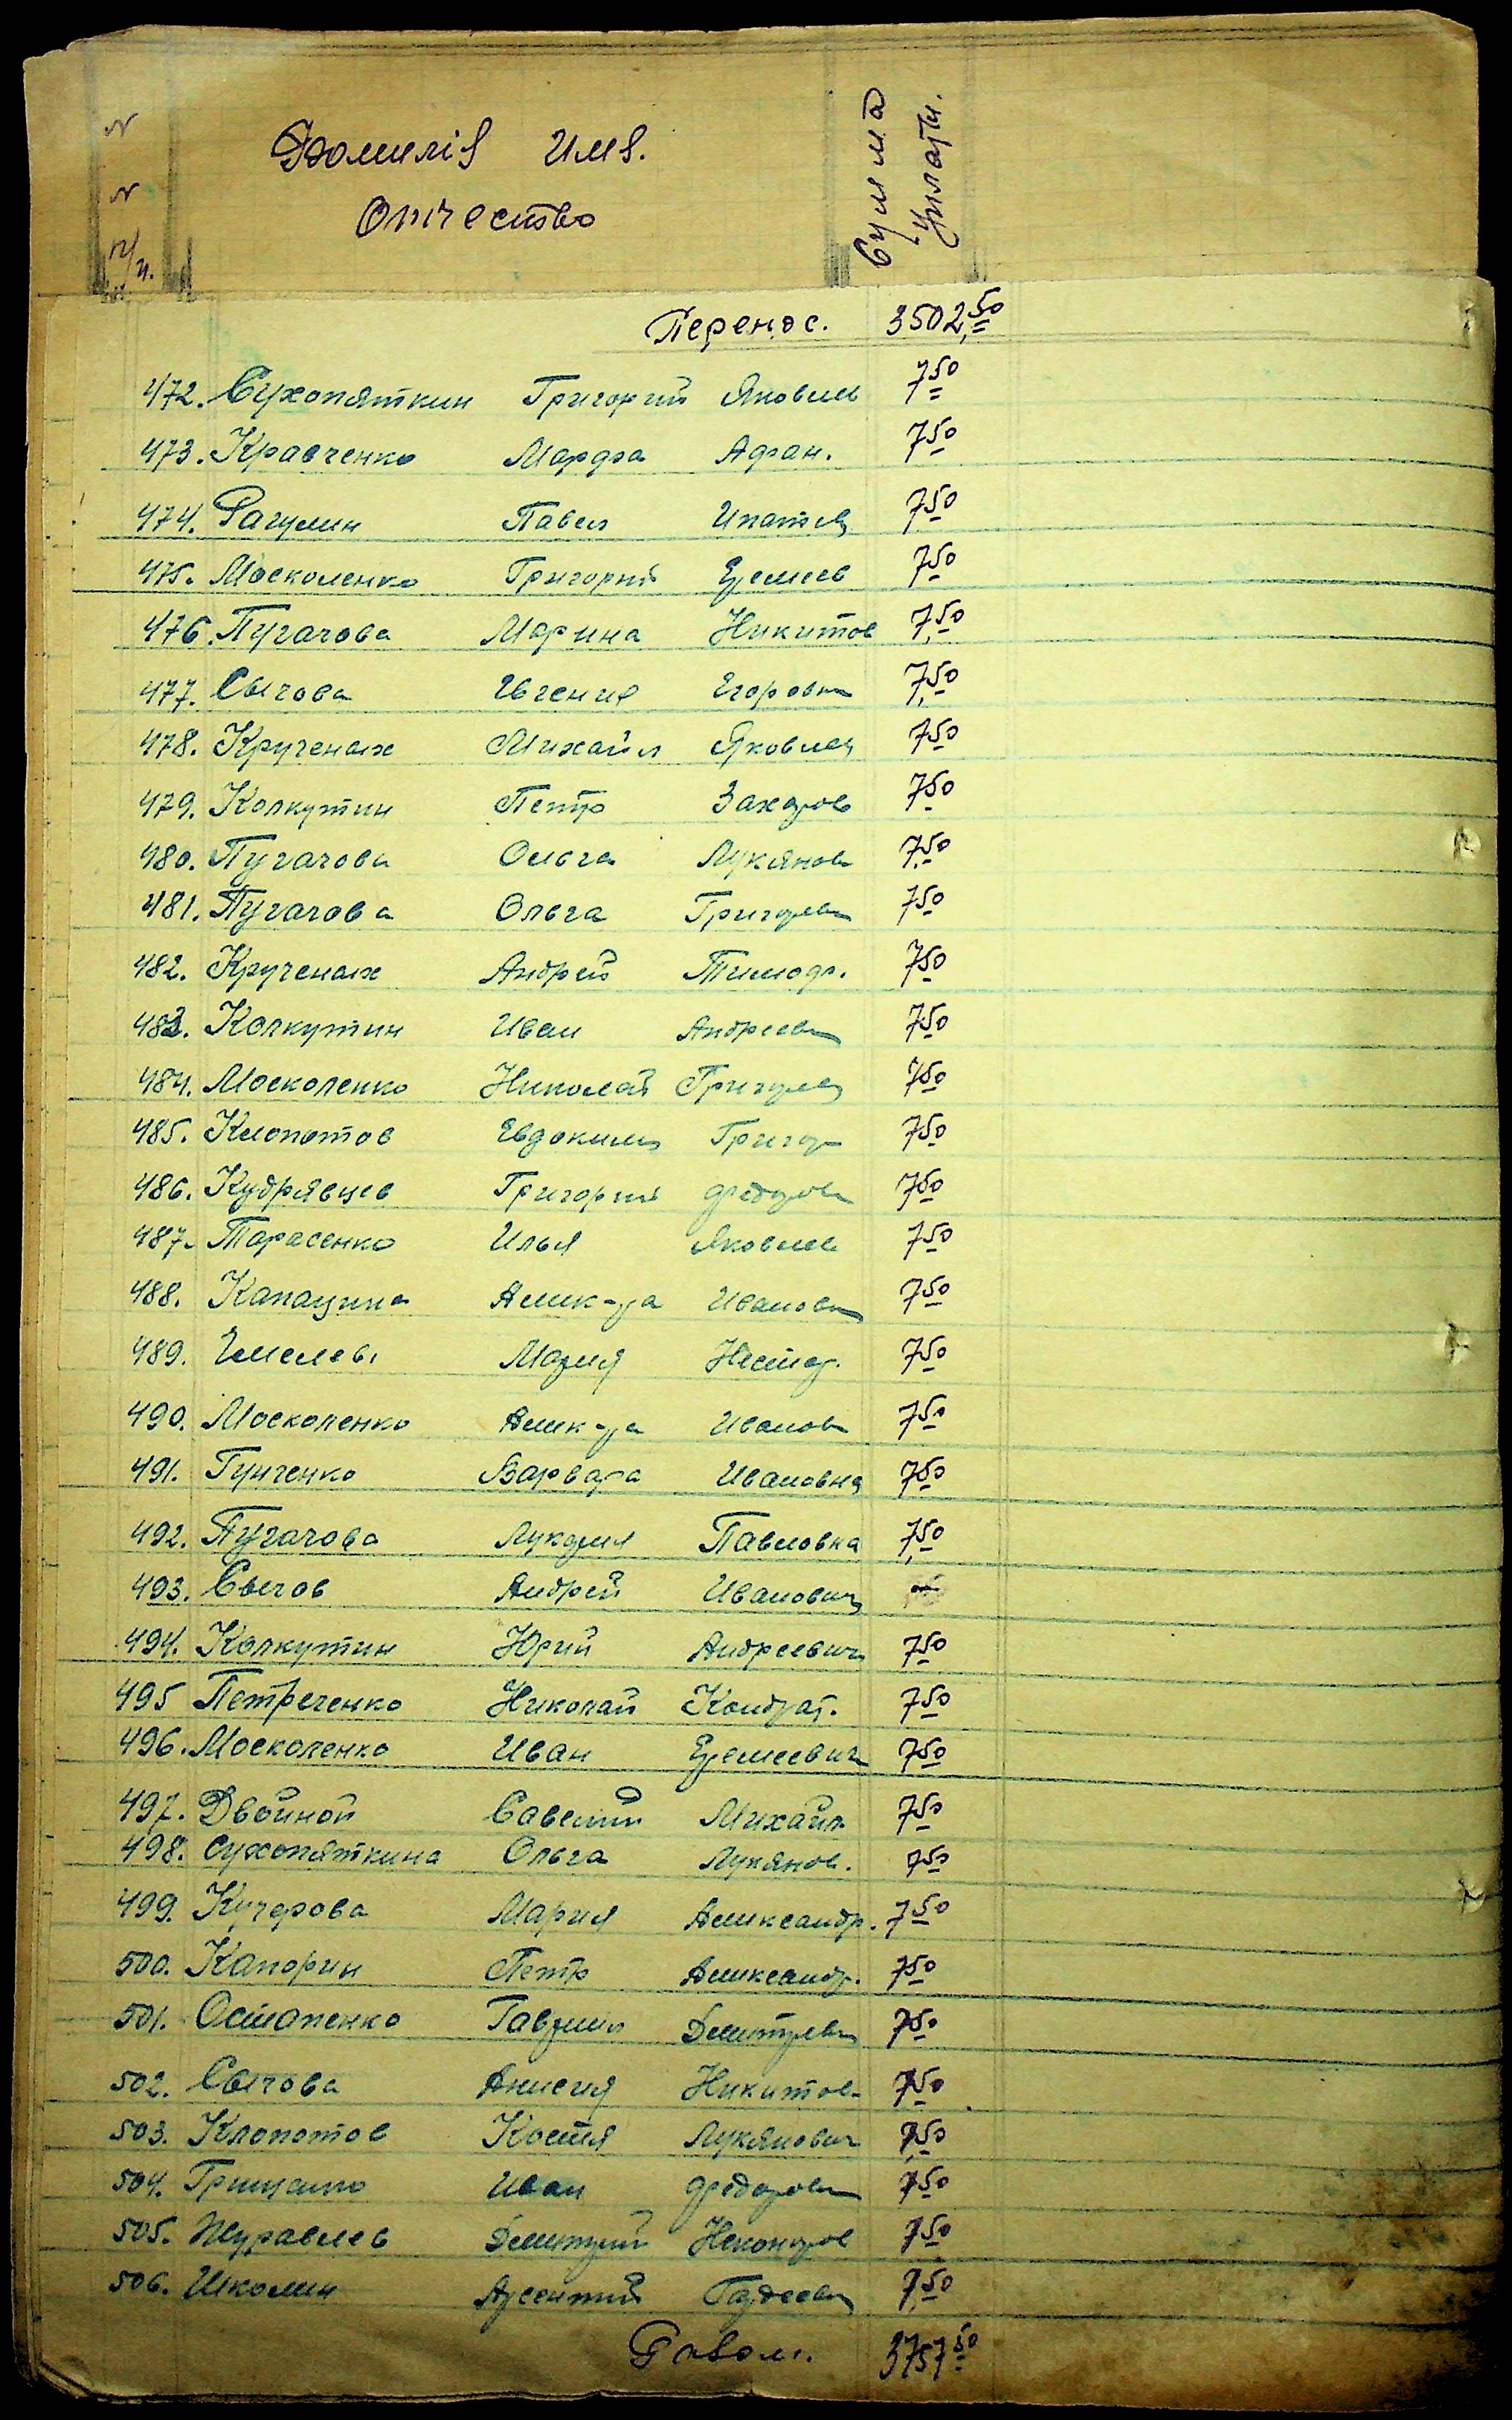 N N п/п.
Фамилія Имя.
Отчество
Сумма
уплати.
Перенос. 3502,50
472. Сухопяткин Григорий Яковлев 7 50
473. Кравченко Марфа Афан. 7 50
474. Рагулин Павел Ипатов 7 50
475. Москоленко Григорий Еремеев 7 50
476. Пугачова Марина Никитов 7,50
477. Сычова Евгения Егоровн 7,50
478. Крученых Михаил Яковлев 7 50
479. Колкутин Петр Захаров 7 50
480. Пугачова Ольга Лукянов 7,50
481. Пугачова Ольга Григорев 7 50
482. Крученых Андрей Тимоф. 7 50
483. Колкутин Иван Андреев 7 50
484. Москоленко Николай Григорев 7 50
485. Клопотов Евдоким Григор 7 50
486. Кудрявцев Григорий Федоров 7 50
487. Тарасенко Илья Яковлев 7 50
488. Капацина Алик-ра Иванов 7 50
489. Мария Нестер. 7 50
490. Москоленко Алик-ра Иванов 7 50
491. Гунченко Варвара Ивановна 7 50
492. Пугачова Лукерия Павловна 7,50
493. Сычов Андрей Иванович
494. Колкутин Юрий Андреевич 7 50
495 Петреченко Николай Кондрат. 7 50
496. Москоленко Иван Еремеевич 7 50
497. Двойной Савелий Михайл 7 50
498. Сухопяткина Ольга Лукянов. 7 50
499. Кучерова Мария Аликсандр. 7 50
500. Капорин Петр Аликсандр. 7 50
501. Остапенко Гаврил Дмитрев 7 50
502. Сычова Анисия Никитов 7 50
503. Клопотов Костя Лукянович 7,50
504. Иван Федоров 7 50
505. Журавлев Дмитрий 7 50
506. Школин Арсентий 7,50
3757 50